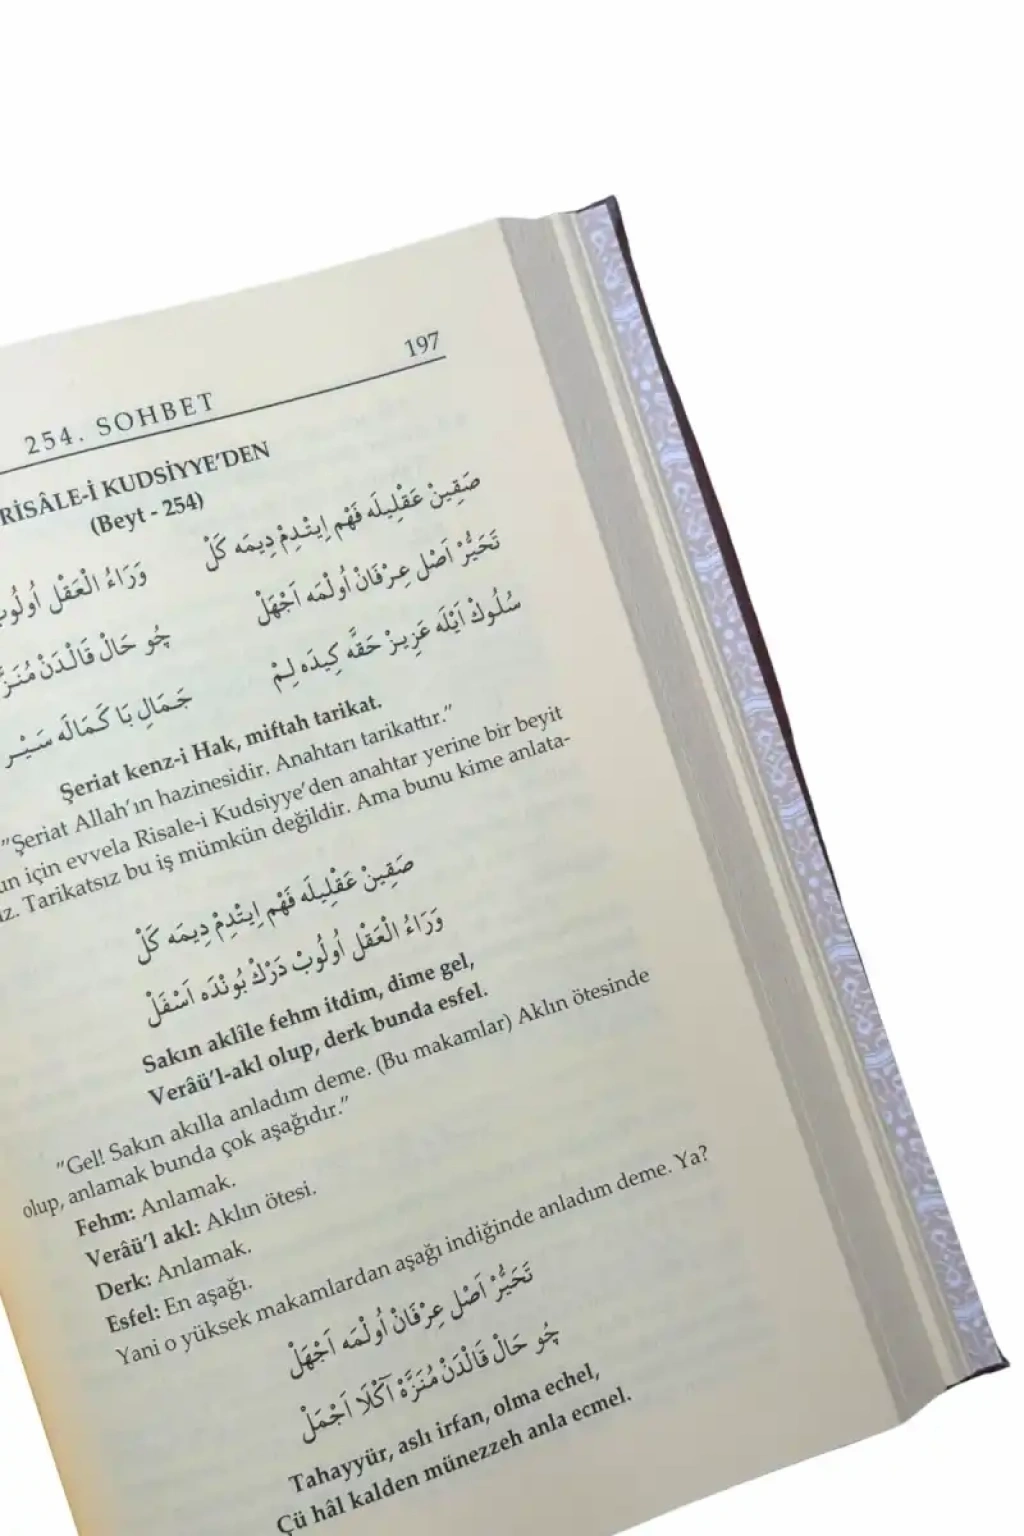 197
254. SOHBET
RİSÂLE-İ KUDSİYYE'DEN
(Beyt - 254)
صَقِينْ عَقْلِيلَه فَهْم اِيتْدِمْ دِيمَه كَلْ
وَرَاءُ الْعَقْل
تَحَيُّرْ اَصْل عِرْفَانْ اُولْمَه اَجْهَلْ
چُو حَالْ قَالْدَنْ
سُلُوكْ اَيْلَه عَزِيزْ حَقَّه كِيدَه لِمْ
جَمَالِ بَا كَمَالَه سَيْر
Şeriat kenz-i Hak, miftah tarikat.
"Şeriat Allah'ın hazinesidir. Anahtarı tarikattır."
için evvela Risale-i Kudsiyye'den anahtar yerine bir beyit
Tarikatsız bu iş mümkün değildir. Ama bunu kime anlata-
صَقِينْ عَقْلِيلَه فَهْم اِيتْدِمْ دِيمَه كَلْ
وَرَاءُ الْعَقْل اُولُوبْ دَرْكْ بُونْدَه اَسْفَلْ
Sakın aklîle fehm itdim, dime gel,
Verâü'l-akl olup, derk bunda esfel.
"Gel! Sakın akılla anladım deme. (Bu makamlar) Aklın ötesinde
olup, anlamak bunda çok aşağıdır."
Fehm: Anlamak.
Verâü'l akl: Aklın ötesi.
Derk: Anlamak.
Esfel: En aşağı.
Yani o yüksek makamlardan aşağı indiğinde anladım deme. Ya?
تَحَيُّرْ اَصْل عِرْفَانْ اُولْمَه اَجْهَلْ
چُو حَالْ قَالْدَنْ مُنَزَّهْ آكْلَا اَجْمَلْ
Tahayyür, aslı irfan, olma echel,
Çü hâl kalden münezzeh anla ecmel.